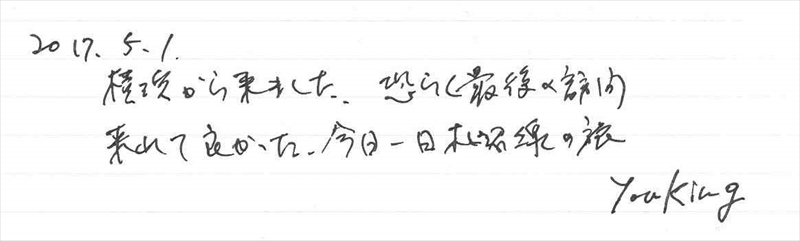 2017. 5. 1.
横浜から来ました. 恐らく最後の訪問
来れて良かった. 今日一日札沼線の旅
YouKing